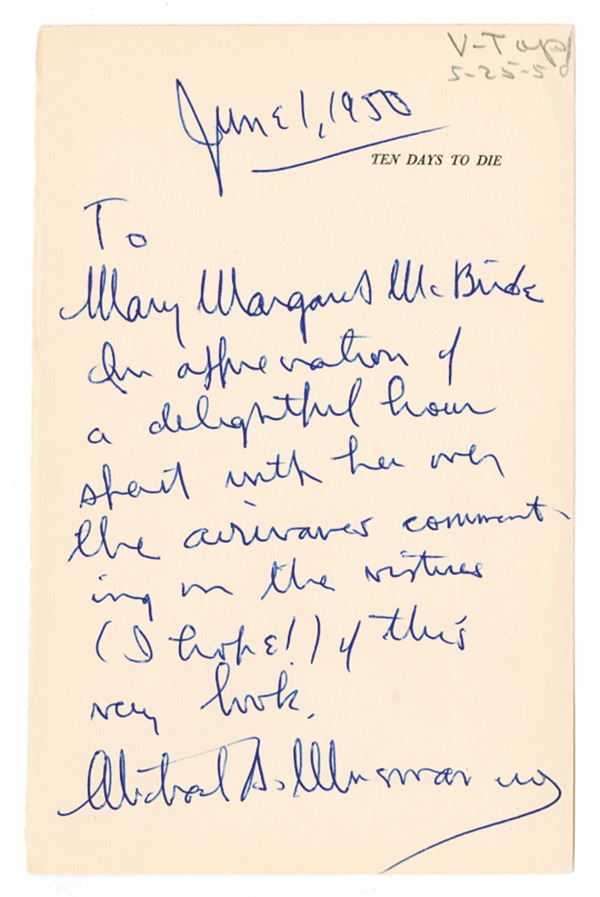 V-Top
5-25-50
June 1, 1950
TEN DAYS TO DIE
To
Mary Margaret McBride
In appreciation of
a delightful hour
spent with her over
the airwaves comment-
ing on the virtues
(I hope!) of this
very book.
Michael A. Musmanno